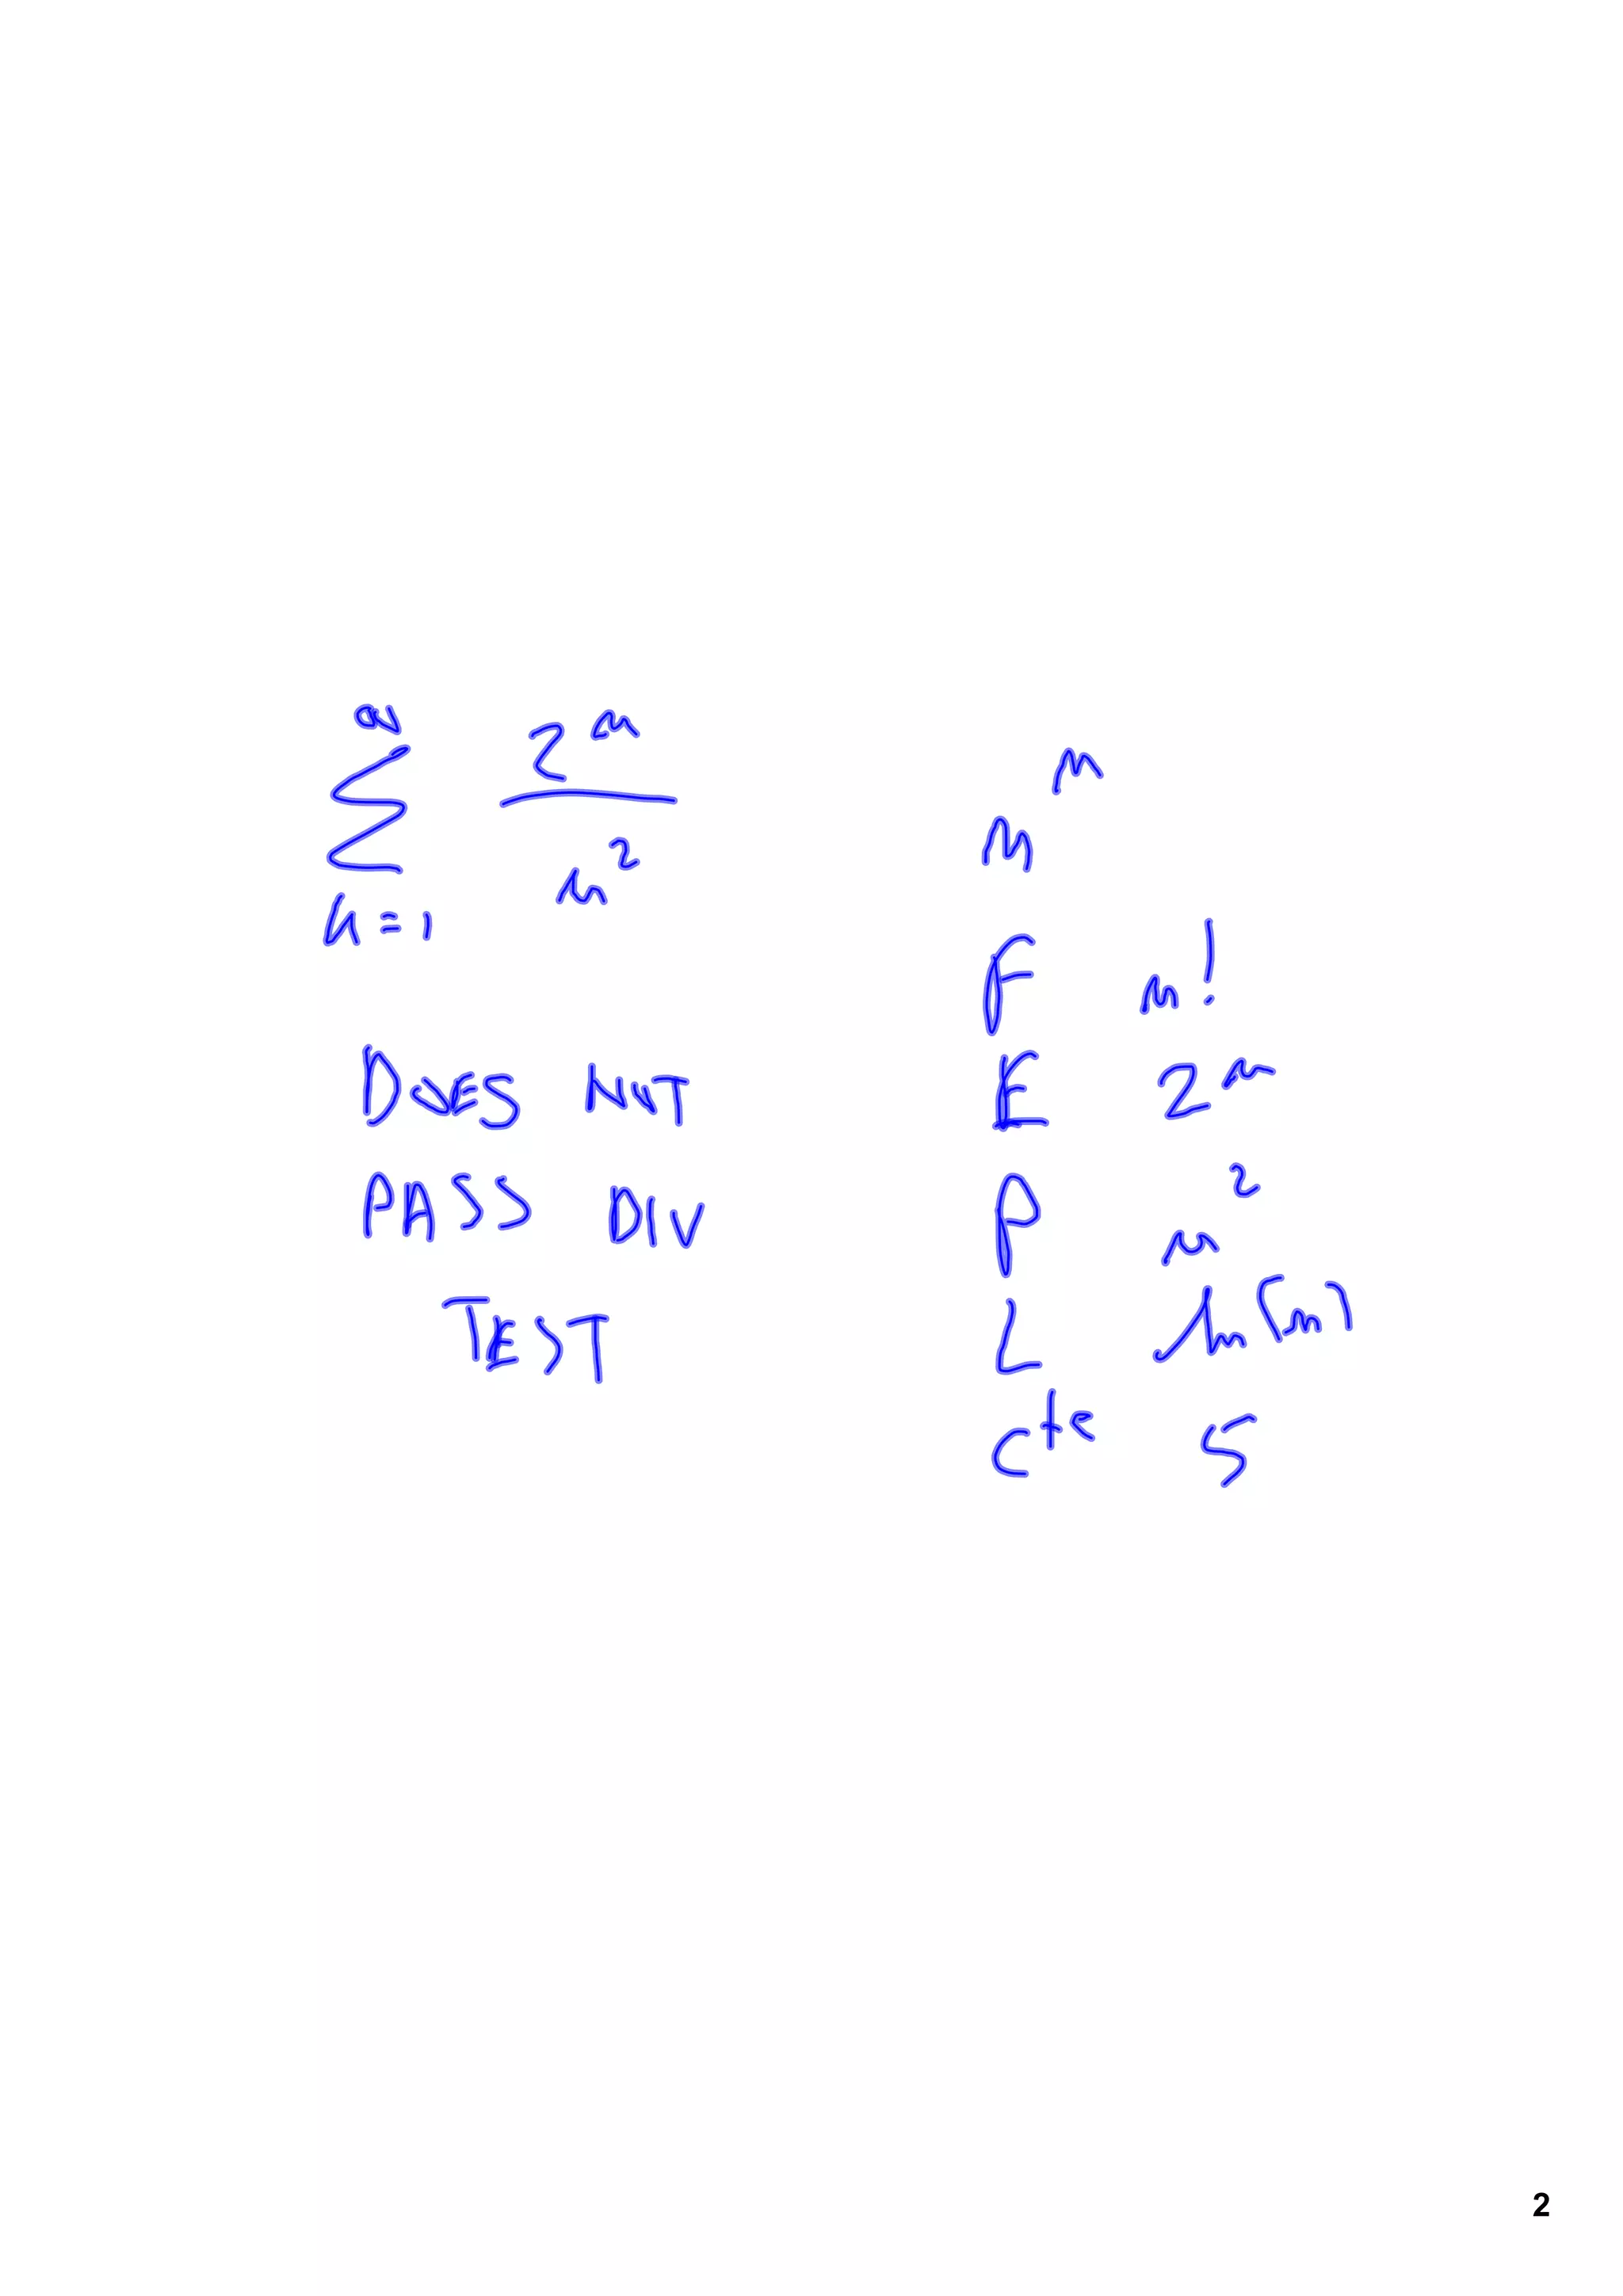 ∞
Σ 2ⁿ / n²
n=1
DOES NOT
PASS DIV
TEST
nⁿ
F n!
E 2ⁿ
P n²
L ln(n)
Cte 5
2